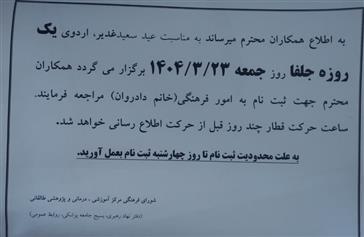 به اطلاع همکاران محترم میرساند به مناسبت عید سعیدغدیر، اردوی یک
روزه جلفا روز جمعه ۱۴۰۴/۳/۲۳ برگزار می گردد همکاران
محترم جهت ثبت نام به امور فرهنگی(خانم دادروان) مراجعه فرمایند.
ساعت حرکت قطار چند روز قبل از حرکت اطلاع رسانی خواهد شد.
به علت محدودیت ثبت نام تا روز چهارشنبه ثبت نام بعمل آورید.
شورای فرهنگی مرکز آموزشی ، درمانی و پژوهشی طالقانی
(دفتر نهاد رهبری، بسیج جامعه پزشکی، روابط عمومی)